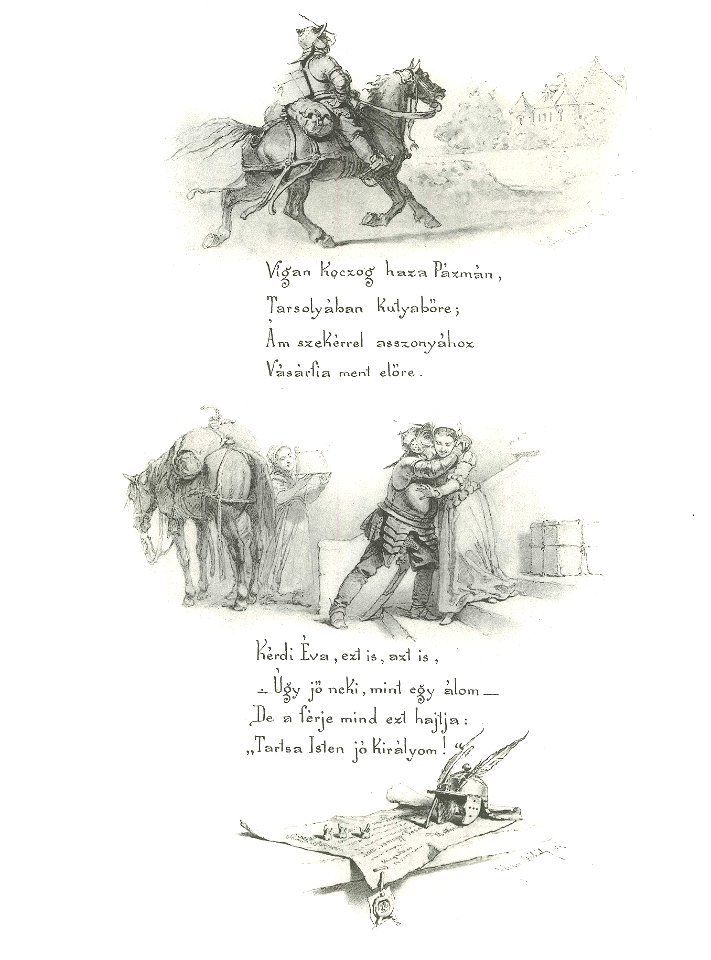 Vígan koczog haza Pázmán,
Tarsolyában kutyabőre;
Ám szekérrel asszonyához
Vásárfia ment előre.
Kérdi Éva, ezt is, azt is,
— Úgy jő neki, mint egy álom —
De a férje mind ezt hajtja:
„Tartsa Isten jó királyom!“